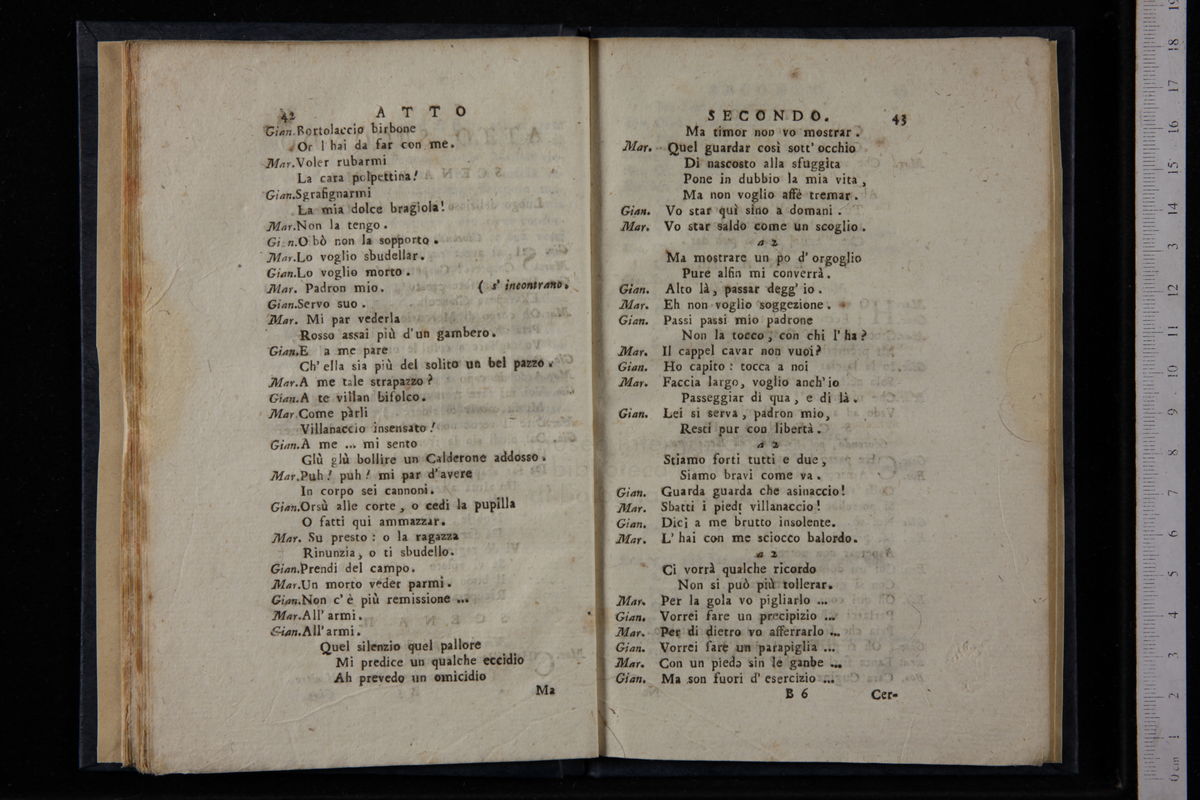 42 ATTO
Gian. Bortolaccio birbone
Or l'hai da far con me.
Mar. Voler rubarmi
La cara polpettina!
Gian. Sgrafignarmi
La mia dolce bragiola!
Mar. Non la tengo.
Gian. O bò non la sopporto.
Mar. Lo voglio sbudellar.
Gian. Lo voglio morto.
Mar. Padron mio. ( s' incontrano.
Gian. Servo suo.
Mar. Mi par vederla
Rosso assai più d'un gambero.
Gian. E a me pare
Ch' ella sia più del solito un bel pazzo.
Mar. A me tale strapazzo?
Gian. A te villan bifolco.
Mar. Come parli
Villanaccio insensato!
Gian. A me ... mi sento
Glù glù bollire un Calderone addosso.
Mar. Puh! puh! mi par d'avere
In corpo sei cannoni.
Gian. Orsù alle corte, o cedi la pupilla
O fatti qui ammazzar.
Mar. Su presto: o la ragazza
Rinunzia, o ti sbudello.
Gian. Prendi del campo.
Mar. Un morto veder parmi.
Gian. Non c'è più remissione ...
Mar. All' armi.
Gian. All' armi.
Quel silenzio quel pallore
Mi predice un qualche eccidio
Ah prevedo un omicidio
Ma
SECONDO. 43
Ma timor non vo mostrar.
Mar. Quel guardar così sott' occhio
Di nascosto alla sfuggita
Pone in dubbio la mia vita,
Ma non voglio affè tremar.
Gian. Vo star quì sino a domani.
Mar. Vo star saldo come un scoglio.
a 2
Ma mostrare un po d'orgoglio
Pure alfin mi converrà.
Gian. Alto là, passar degg' io.
Mar. Eh non voglio soggezione.
Gian. Passi passi mio padrone
Non la tocco, con chi l'ha?
Mar. Il cappel cavar non vuoi?
Gian. Ho capito: tocca a noi
Mar. Faccia largo, voglio anch' io
Passeggiar di qua, e di là.
Gian. Lei si serva, padron mio,
Resti pur con libertà.
a 2
Stiamo forti tutti e due,
Siamo bravi come va.
Gian. Guarda guarda che asinaccio!
Mar. Sbatti i piedi villanaccio!
Gian. Dici a me brutto insolente.
Mar. L'hai con me sciocco balordo.
a 2
Ci vorrà qualche ricordo
Non si può più tollerar.
Mar. Per la gola vo pigliarlo ...
Gian. Vorrei fare un precipizio ...
Mar. Per di dietro vo afferrarlo ...
Gian. Vorrei fare un parapiglia ...
Mar. Con un piede sin le ganbe ...
Gian. Ma son fuori d'esercizio ...
B 6 Cer-